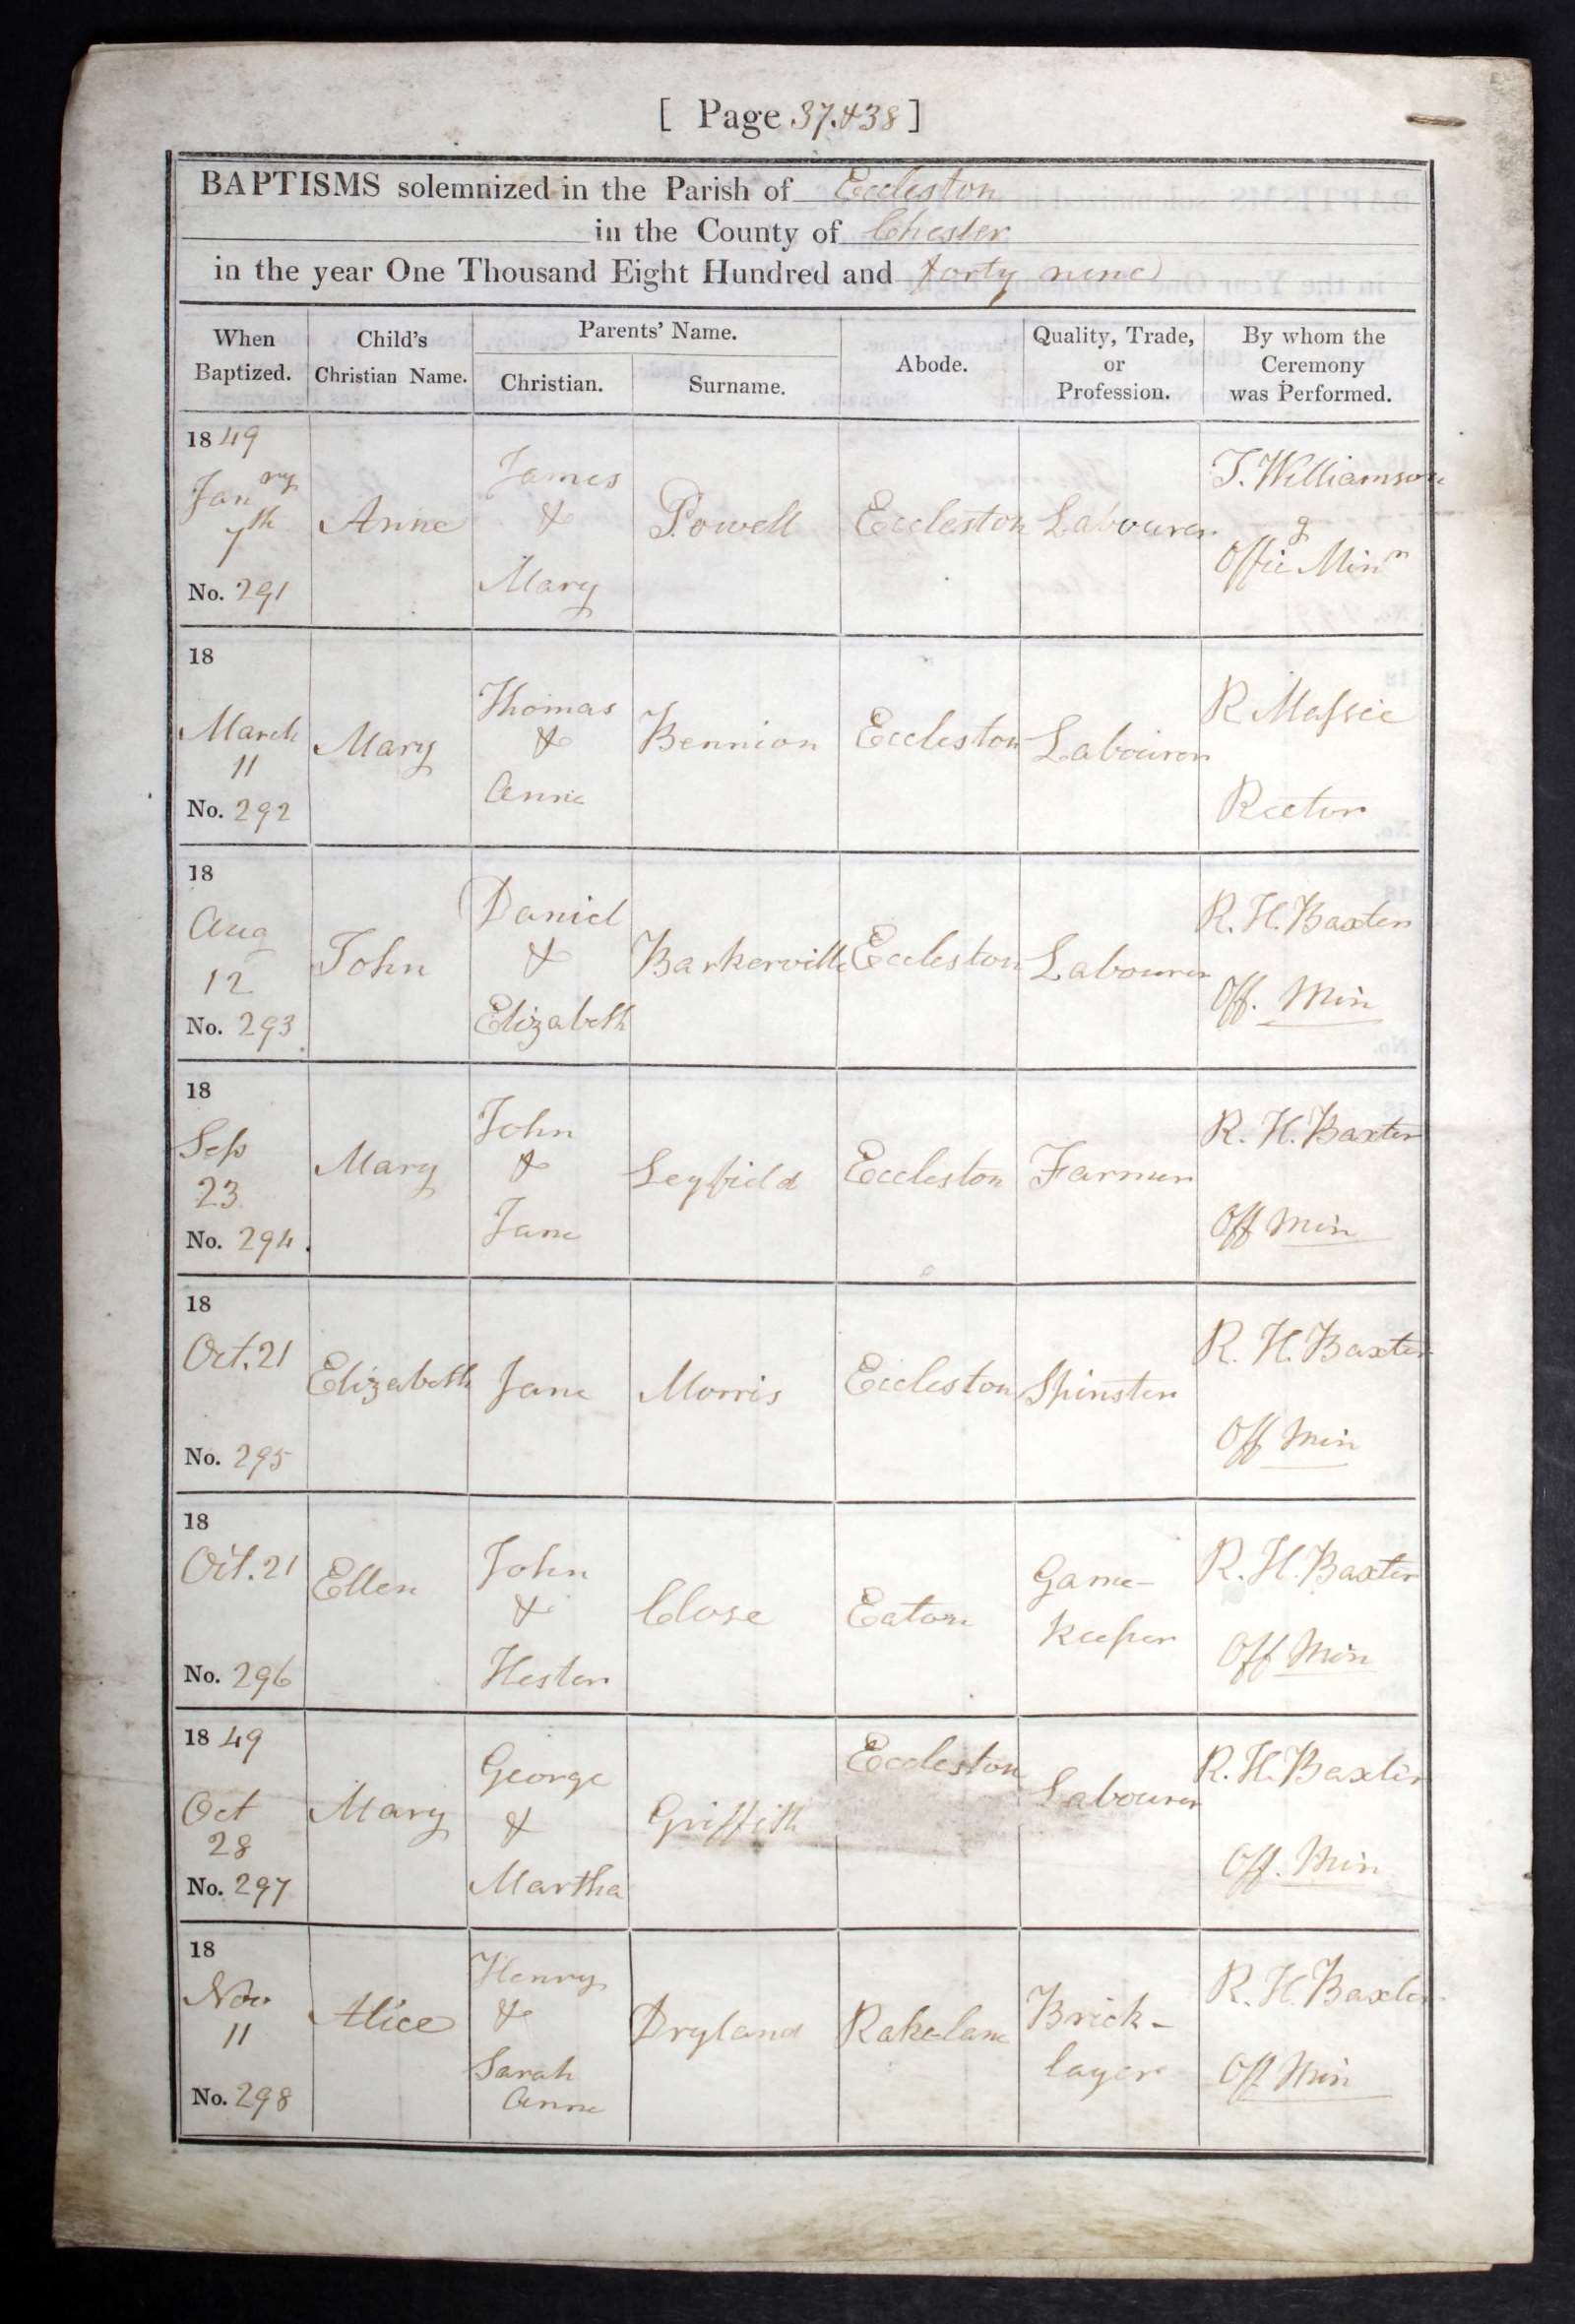 [ Page 37.&38 ]
BAPTISMS solemnized in the Parish of Eccleston
in the County of Chester
in the year One Thousand Eight Hundred and forty nine
When Baptized.
Child's Christian Name.
Parents' Name.
Christian.
Surname.
Abode.
Quality, Trade, or Profession.
By whom the Ceremony was Performed.
1849
Janry
7th
No. 291
Anne
James
&
Mary
Powell
Eccleston
Labourer
T. Williamson
Officg Minr
18
March
11
No. 292
Mary
Thomas
&
Anne
Bennion
Eccleston
Labourer
R Massie
Rector
18
Aug
12
No. 293
John
Daniel
&
Elizabeth
Barkerville
Eccleston
Labourer
R. H. Baxter
Off. Min
18
Sep
23
No. 294
Mary
John
&
Jane
Leyfield
Eccleston
Farmer
R. H. Baxter
Off Min
18
Oct. 21
No. 295
Elizabeth
Jane
Morris
Eccleston
Spinster
R. H. Baxter
Off Min
18
Oct. 21
No. 296
Ellen
John
&
Hester
Close
Eaton
Game-
keeper
R. H. Baxter
Off Min
1849
Oct
28
No. 297
Mary
George
&
Martha
Griffith
Eccleston
Labourer
R. H. Baxter
Off. Min
18
Nov
11
No. 298
Alice
Henry
&
Sarah
Anne
Dryland
Rake-lane
Brick-
layer
R. H. Baxter
Off Min